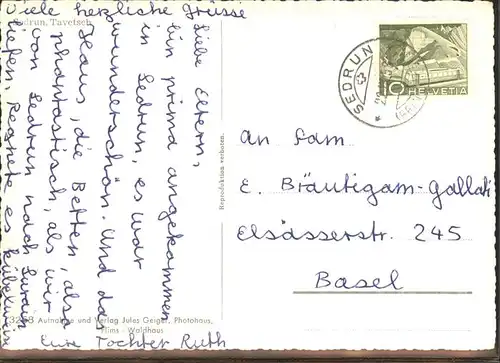 Viele herzliche Grüsse
Sedrun, Tavetsch
Liebe Eltern,
bin prima angekommen
in Sedrun, es war
wunderschön. Und das
Haus, die Betten, also
phantastisch, als wir
von Sedrun nach
liefen, Regnete es
Eure Tochter Ruth
3248 Aufnahme und Verlag Jules Geiger, Photohaus,
Flims - Waldhaus
Reproduktion verboten.
SEDRUN
10 HELVETIA
An Fam
E. Bräutigam-Gallati
Elsässerstr. 245
Basel